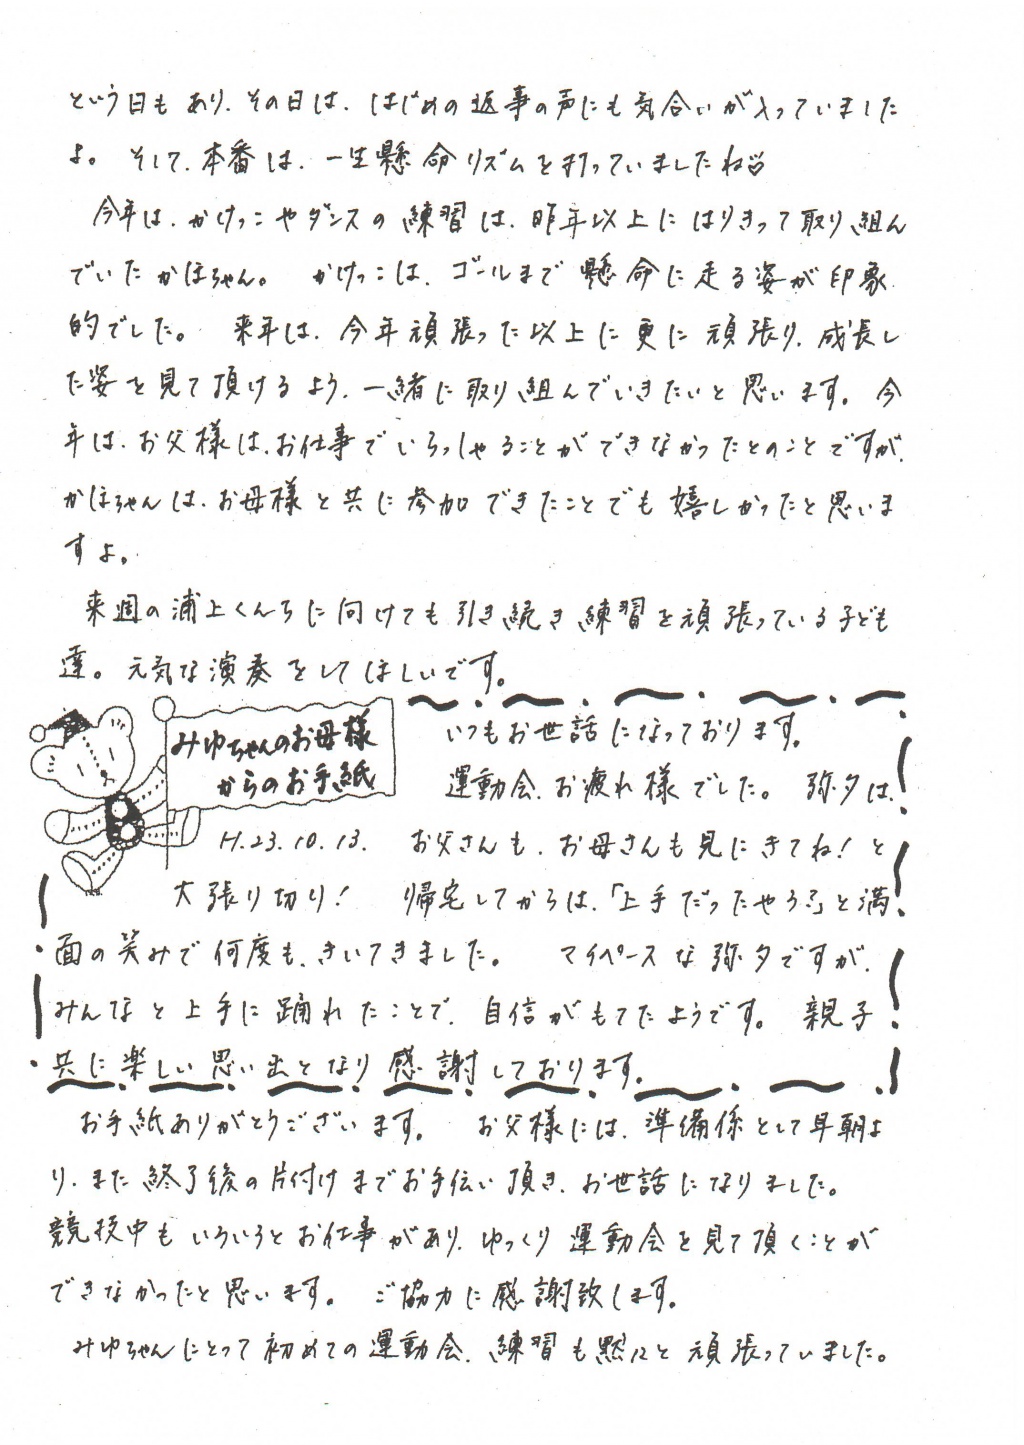 という日もあり、その日は、はじめの返事の声にも気合いが入っていました
よ。そして、本番は、一生懸命リズムを打っていましたね
今年は、かけっこやダンスの練習は、昨年以上にはりきって取り組ん
でいたかほちゃん。かけっこは、ゴールまで懸命に走る姿が印象
的でした。来年は、今年頑張った以上に更に頑張り、成長し
た姿を見て頂けるよう、一緒に取り組んでいきたいと思います。今
年は、お父様は、お仕事でいらっしゃることができなかったとのことですが、
かほちゃんは、お母様と共に参加できたことでも嬉しかったと思いま
すよ。
来週の浦上くんちに向けても引き続き練習を頑張っている子ども
達。元気な演奏をしてほしいです。
みゆちゃんのお母様
からのお手紙
いつもお世話になっております。
運動会、お疲れ様でした。弥夕は、
H.23.10.13. お父さんも、お母さんも見にきてね!と
大張り切り! 帰宅してからは、「上手だったやろ?」と満
面の笑みで何度も、きいてきました。マイペースな弥夕ですが、
みんなと上手に踊れたことで、自信がもてたようです。親子
共に楽しい思い出となり感謝しております。
お手紙ありがとうございます。お父様には、準備係として早朝よ
り、また終了後の片付けまでお手伝い頂き、お世話になりました。
競技中もいろいろとお仕事があり、ゆっくり運動会を見て頂くことが
できなかったと思います。ご協力に感謝致します。
みゆちゃんにとって初めての運動会、練習も黙々と頑張っていました。